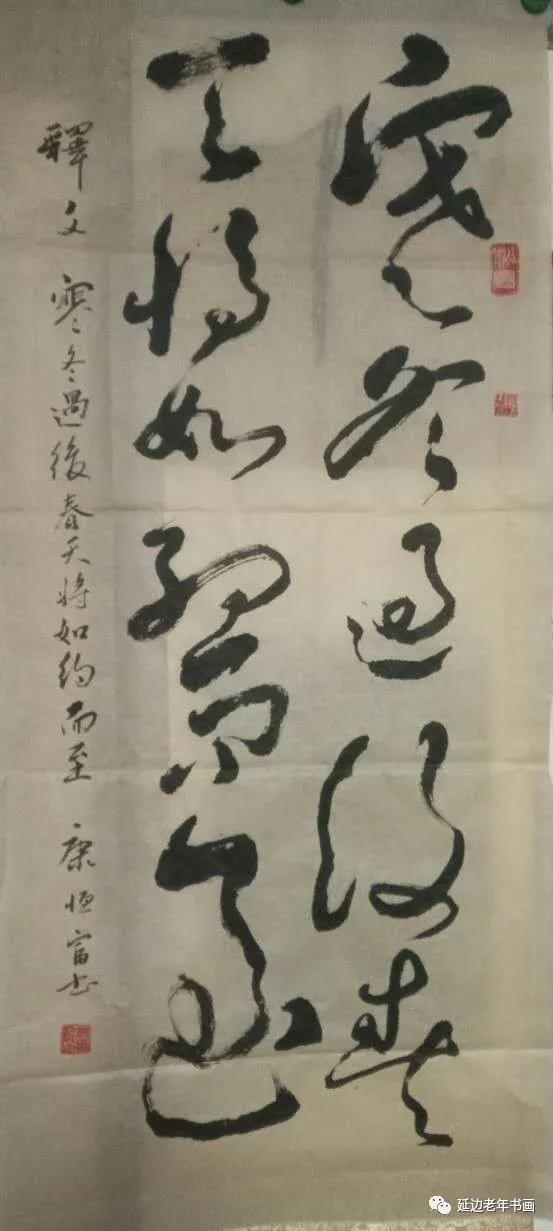 寒冬過後春
天將如約而至
釋文 寒冬過後春天将如約而至 康恒富书
延边老年书画